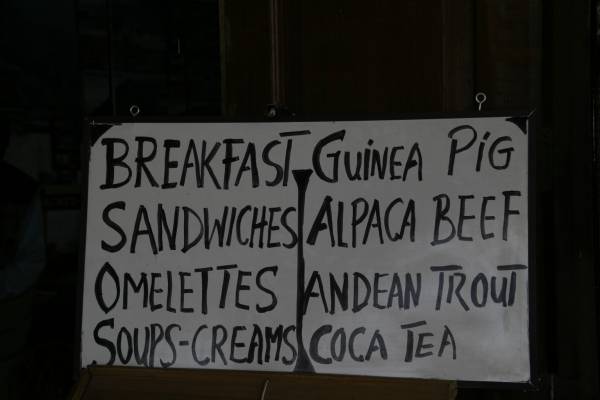 BREAKFAST
SANDWICHES
OMELETTES
SOUPS-CREAMS
GUINEA PIG
ALPACA BEEF
ANDEAN TROUT
COCA TEA